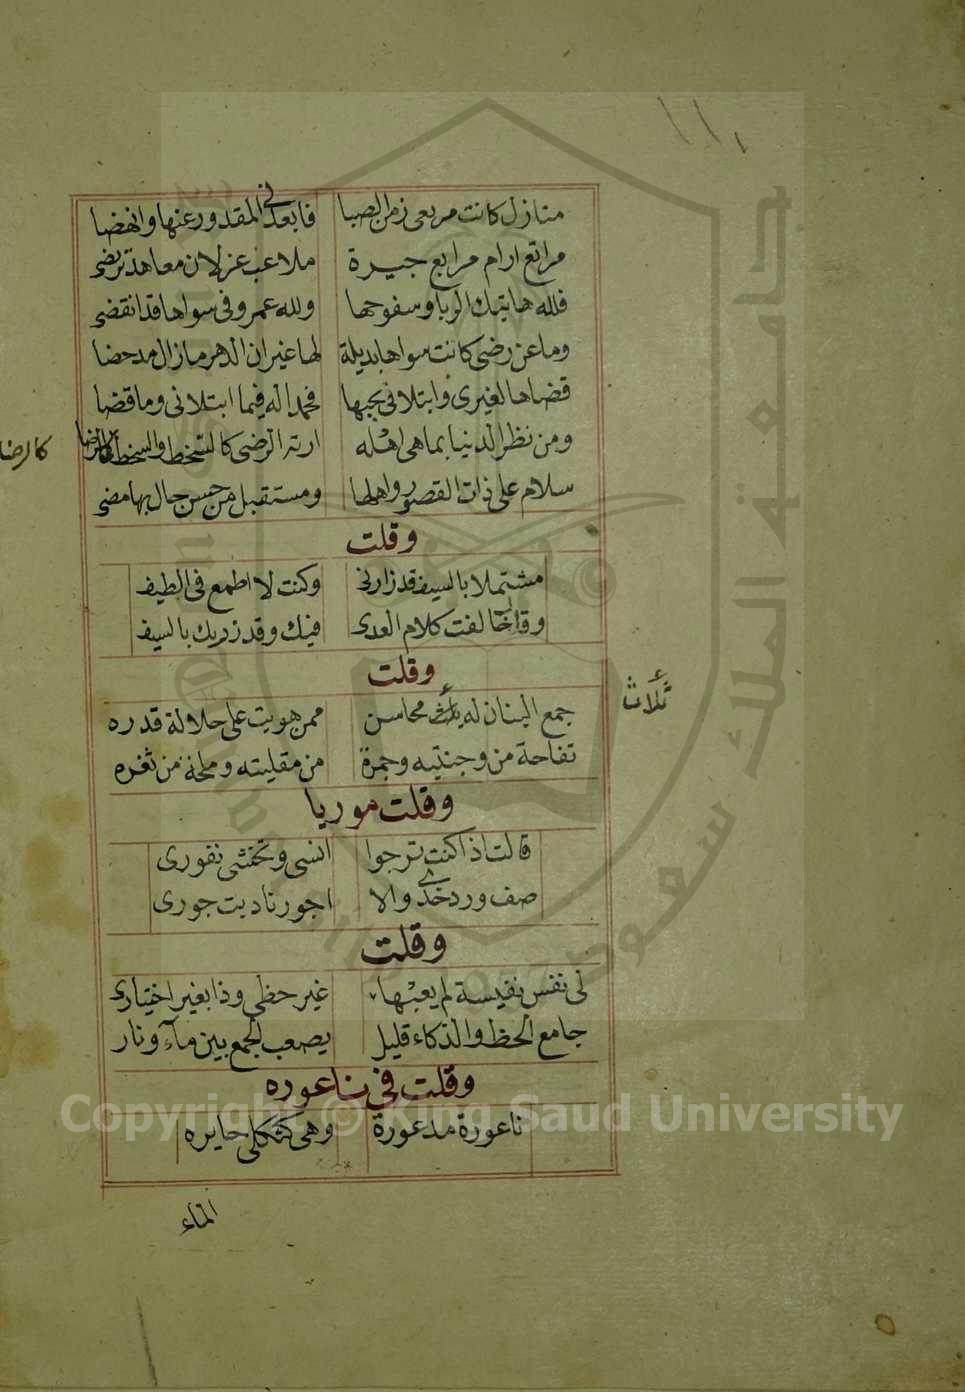 منازل كانت مربعى زمن الصبا فابعدنى المقدور عنها وانهضا
مراتع ارام مرابع جيرة ملاعب غزلان معاهد تربضى
فلله هاتيك الربا وسفوحها ولله عمر وفى سواها قد انقضى
وما عن رضى كانت سواها بديلة لها غير ان الدهر مازال مدحضا
قضاها لغيرى وابتلانى بحبها فحمدا له فيما ابتلانى وما قضا
ومن نظر الدنيا بما هى اهله ارته الرضى كالسخط والسخط كالرضا
كالرضا
سلام على ذات القصور واهلها ومستقبل من حسن حال بها مضى
وقلت
مشتملا بالسيف قد زارنى وكنت لا اطمع فى الطيف
وقال خالفت كلام العدى فيك وقد زريك بالسيف
وقلت
جمع البنان له ثلاث محاسن ممن هويت على جلالة قدره
ثلاث
تفاحة من وجنتيه وجمرة من مقليته وملحة من ثغره
وقلت موريا
قالت اذا كنت ترجوا انسى وتخشى نفورى
صف ورد خدى والا اجور ناديت جورى
وقلت
لى نفس نفيسة لم يعبها غير حظى وذا بغير اختيارى
جامع الحظ والذكاء قليل يصعب الجمع بين مآء ونار
وقلت فى ناعوره
ناعورة مدعورة وهى كثكلى حايره
الماء
Copyright © King Saud University
جامعة الملك سعود